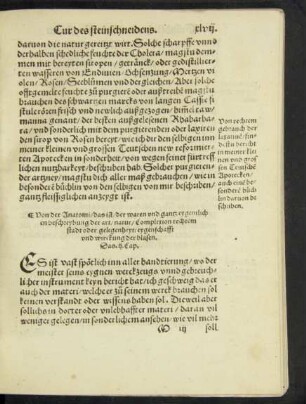 Cur des steinschneidens. xlvij.
daruon die natur gereitzt wirt. Solche scharpffe vnnd
derhalben schedliche feüchte der Cholera / magstu dem
men mit bereyten siropen / getränck / oder gedistillier-
ten wasseren von Endiuien / Ochsenzung / Mertzen vi-
olen / Rosen / Seeblůmen vnd der gleichen / Aber solche
offtgemelte feücht zů purgieren oder außtreibē magstu
brauchen des schwartzen marcks von langen Cassie fi
stulerören frisch vnd newlich außgezogen / himel taw /
manna genant / der besten außgelesenen Rhabarba-
ra / vnd sonderlich mit dem purgierenden oder laxirē
den sirop von Rosen bereyt / wie ich der selbigen inn
meiner kleinen vnd grossen Teütschen new reformier-
ten Apotecken in sonderheyt / von wegen seiner fürtreff
lichen nutzbarkeyt / beschriben hab. Solcher purgieren-
der artzney / magstu dich aller maß gebrauchen / wie in
besondere büchlin von den selbigen von mir beschriben /
gantz fleissiglichen anzeygt ist.
Von rechtem
gebrauch der
laxatiuē / findestu
bericht
in meiner kleinen
vnd grossen
Teütschē
Apotecken /
auch eine besondere
büchlin
daruon beschriben.
Von der Anatomi / das ist / der waren vnd gantz eygentlichen
beschreybung der art / natur / Complexion rechtem
statt oder gelegenheyt / eygenschafft
vnd würckung der blasen.
Das. ij. Cap.
ES ist vast spötlich inn aller handtierung / wo der
meister seins eygnen werckzeugs vnnd gebreuch-
licher instrument keyn bericht hat / ich geschweig das er
auch der materi / welche er zů seinem werck brauchen sol
keinen verstande oder wissens haben sol. Dieweil aber
sollichs in dorter oder vnlebhaffter materi / daran vil
weniger gelegen / in sonderlichem ansehen / wie vil mehr
iij soll